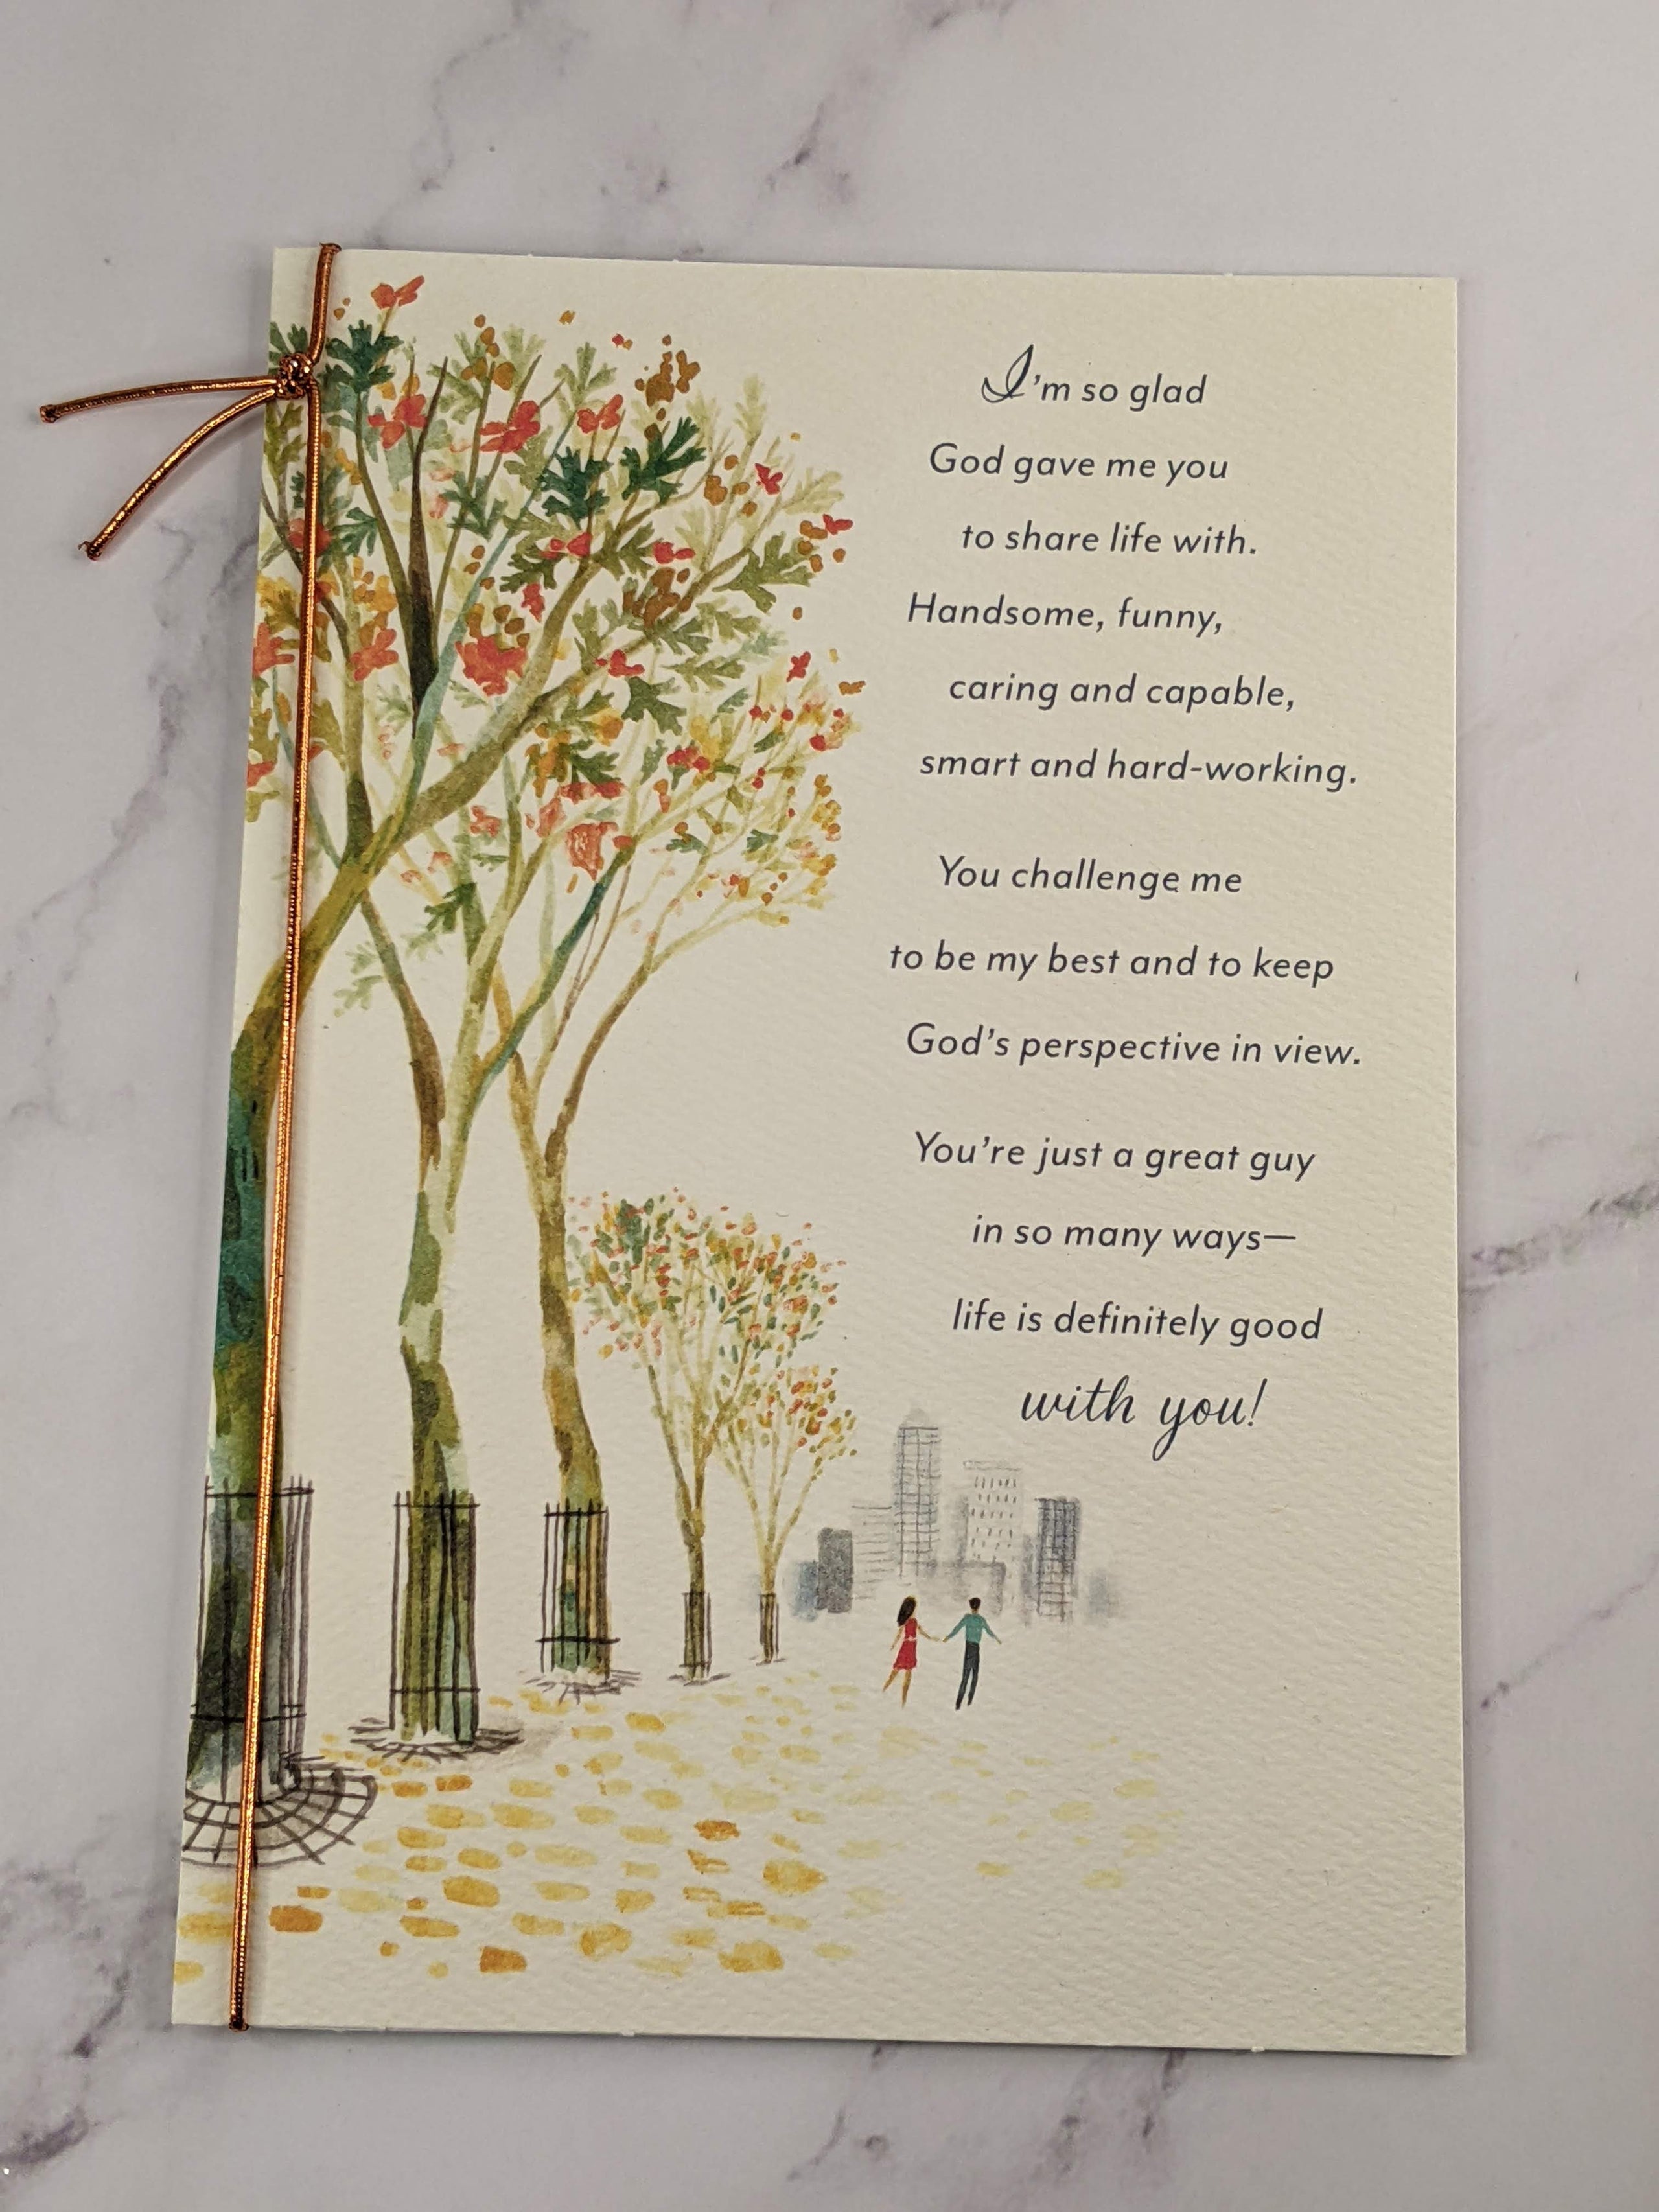 I'm so glad
God gave me you
to share life with.
Handsome, funny,
caring and capable,
smart and hard-working.
You challenge me
to be my best and to keep
God's perspective in view.
You're just a great guy
in so many ways—
life is definitely good
with you!